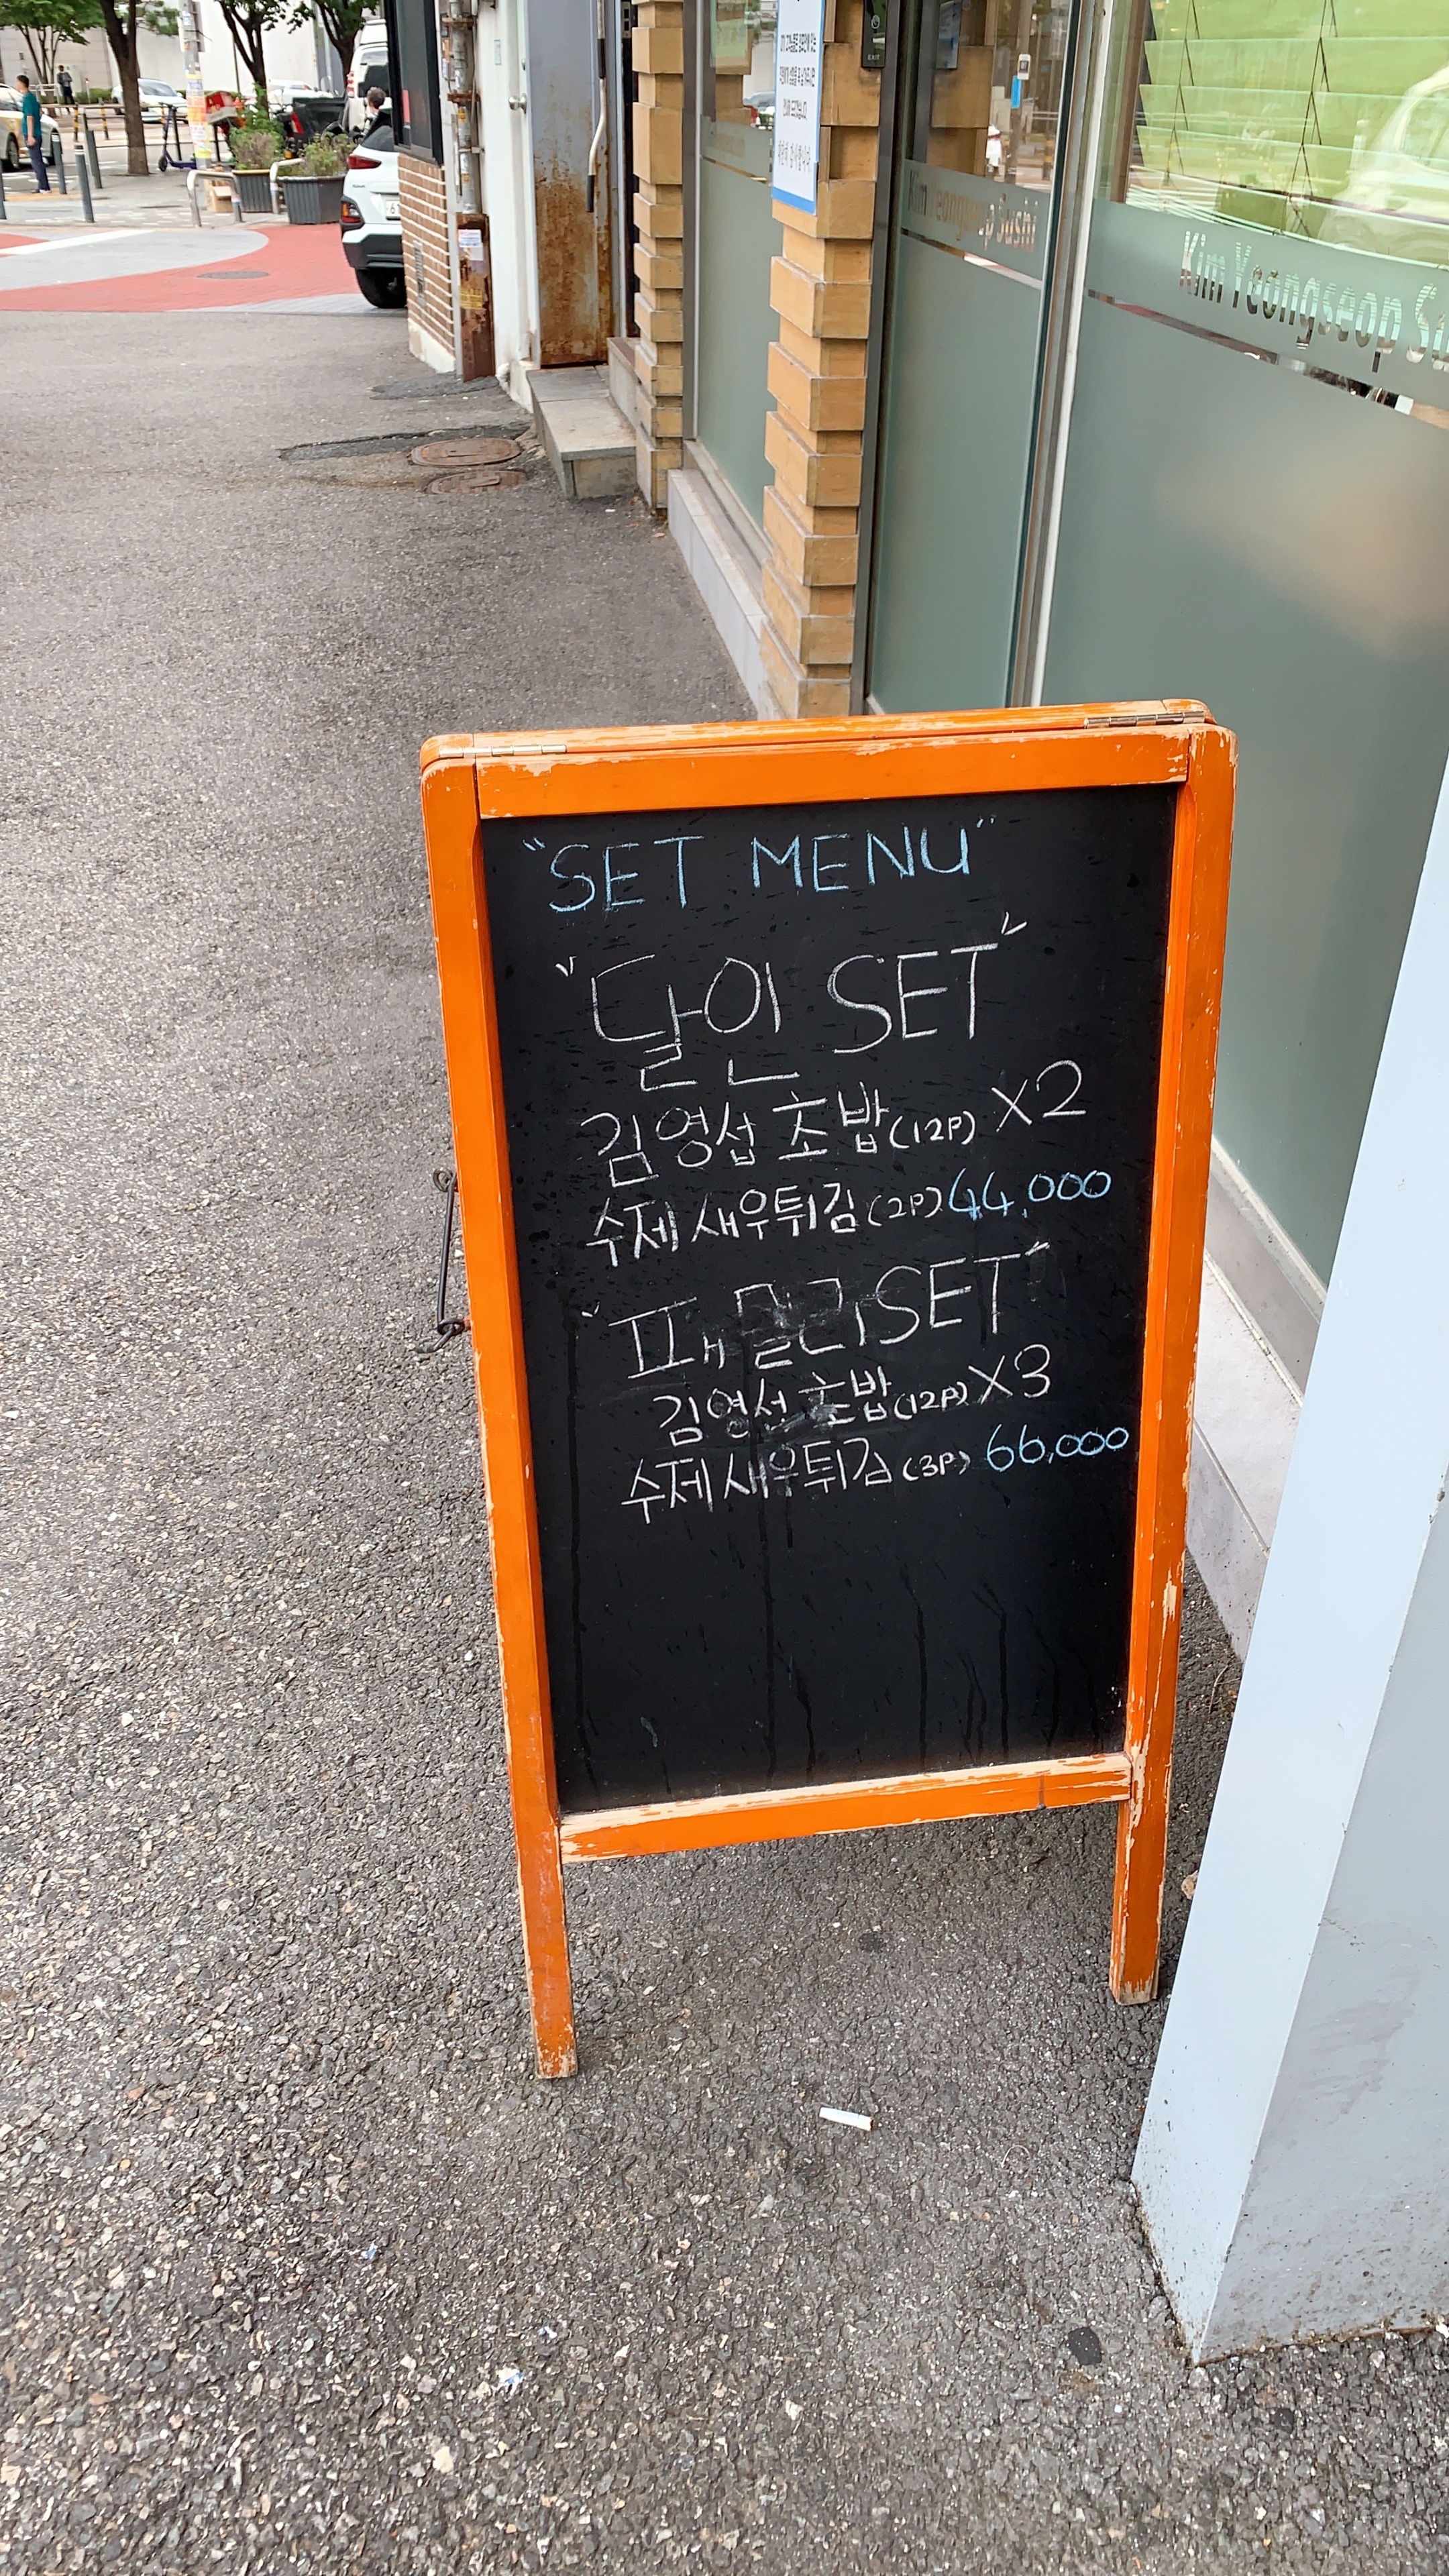 "SET MENU"
"달인 SET"
김영섭 초밥(12P) X2
수제 새우튀김(2P) 44,000
"패밀리 SET"
김영섭 초밥(12P) X3
수제새우튀김(3P) 66,000
Kim Yeongseop
Kim Yeongseop Sushi